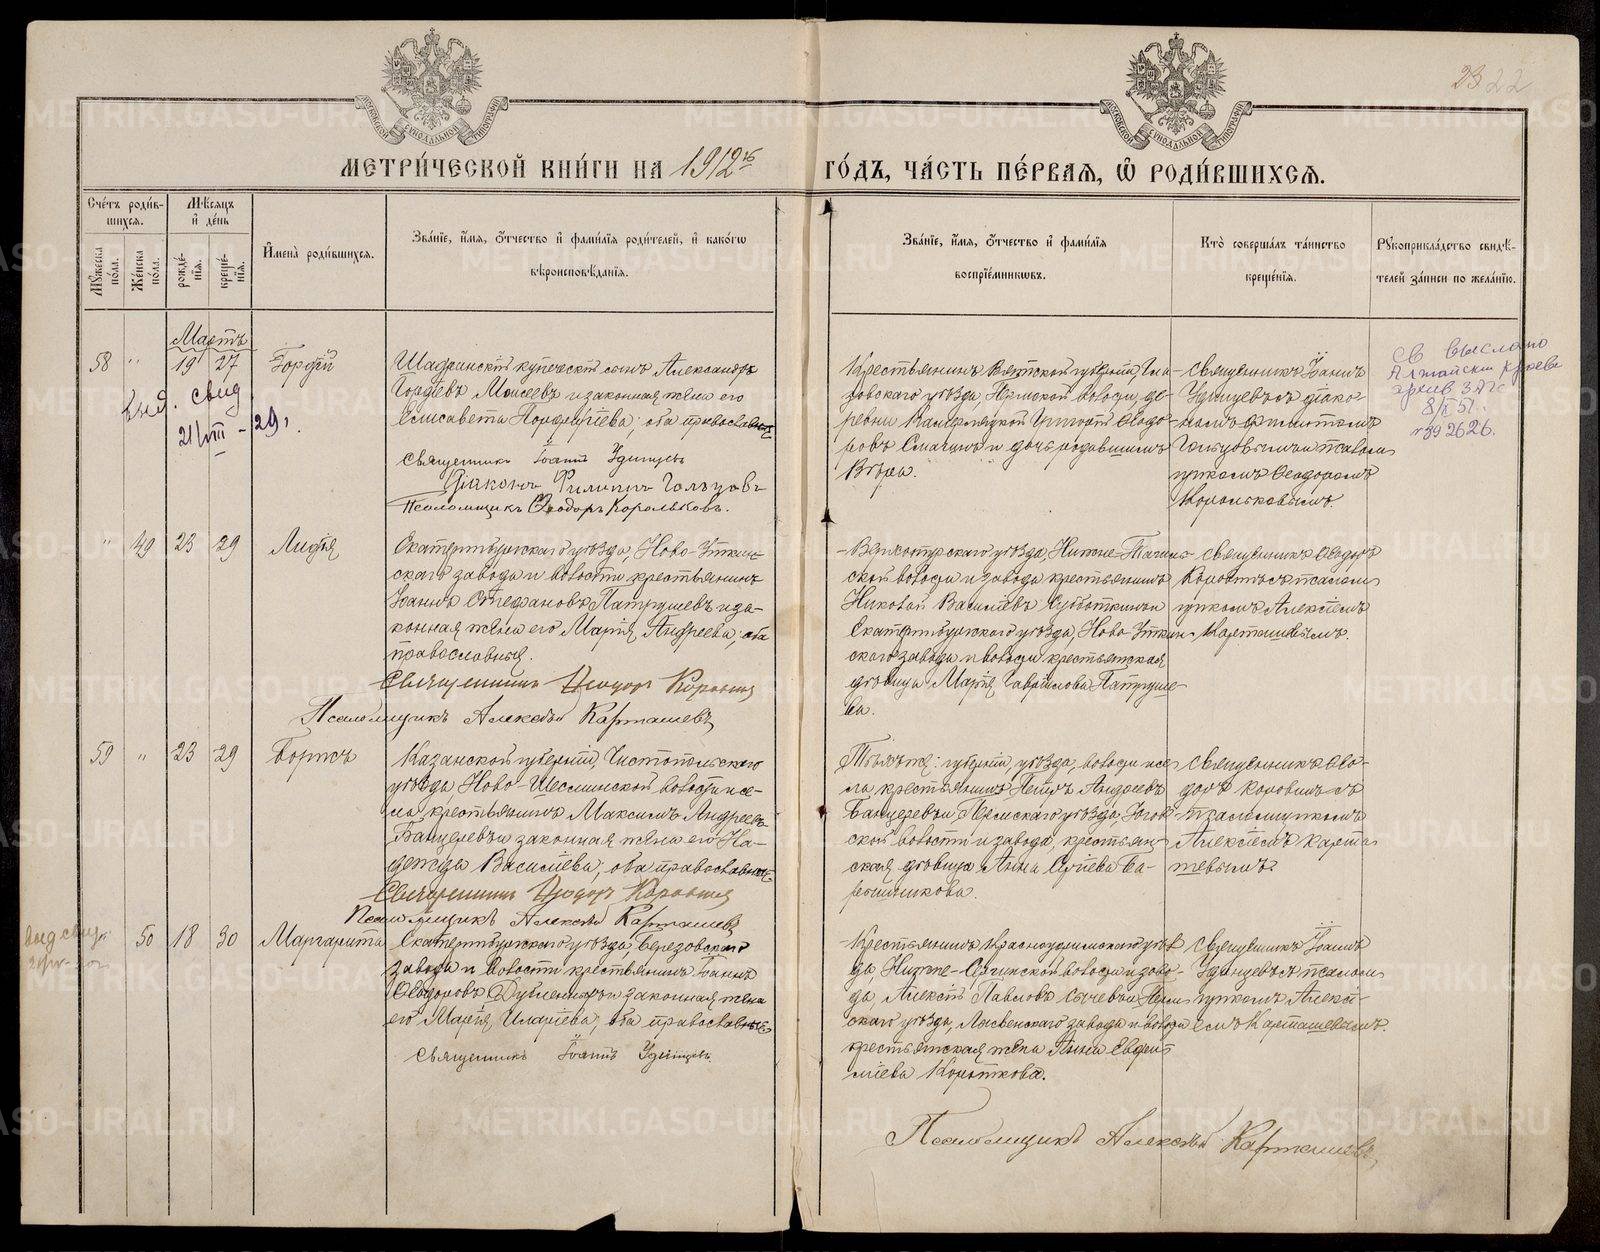 23 22
МЕТРИ́ЧЕСКОЙ КНИ́ГИ НА 1912й ГО́ДЪ, ЧА́СТЬ ПЕ́РВАЯ, Ѽ РОДИ́ВШИХСЯ.
Сче́тъ роди́в-
шихся.
Мѣ́сяцъ
и҆ де́нь
Му́жеска
по́ла.
Же́нска
по́ла.
рожде́-
нїя.
креще́-
нїя.
И҆мена̀ роди́вшихся.
Зва́нїе, и҆́мя, ѻ҆́тчество и҆ фами́лїя роди́телей, и҆ како́гѡ
вѣроисповѣ́данїя.
Зва́нїе, и҆́мя, ѻ҆́тчество и҆ фами́лїя
воспрїе́мниковъ.
Кто̀ соверша́лъ та́инство
креще́нїя.
Рꙋкоприкла́дство свидѣ́-
телей за́писи по жела́нїю.
Мартъ
58 " 19 27 Гордій
Шадринскій купеческій сынъ Александръ
Гордѣевъ Моисеевъ и законная жена его
Елисавета Порфиріева; оба православные
Священникъ Іоаннъ Удинцевъ
Діаконъ Филиппъ Гольцовъ
Псаломщикъ Ѳеодоръ Корольковъ.
выд. свид
21/VIII - 29 г.
Крестьянинъ Вятской губерніи, Гла-
зовскаго уѣзда,
Григорій Ѳеодо-
ровъ и дочь
Вѣра.
Священникъ Іоаннъ
Удинцевъ съ діако-
номъ Филиппомъ
Гольцовымъ и псалом-
щикомъ Ѳеодоромъ
Корольковымъ.
Св выслано
Алтайский краев
архив ЗАГС
8/X 51.
№ 39 2626.
" 49 23 29 Лидія
Екатеринбургскаго уѣзда, Ново-Уткин-
скаго завода и волости крестьянинъ
Іоаннъ Стефановъ Патрушевъ и за-
конная жена его Марія Андреева; оба
православные.
Священникъ Ѳеодоръ Коровинъ
Псаломщикъ Алексѣй Карташевъ
Верхотурскаго уѣзда, Нижне-Тагиль-
ской волости и завода крестьянинъ
Николай Васильевъ Субботкинъ и
Екатеринбургскаго уѣзда, Ново-Уткин-
скаго завода и волости крестьянская
дѣвица Марія Гавріилова Патруше-
ва.
Священникъ Ѳеодоръ
Коровинъ съ псалом-
щикомъ Алексѣемъ
Карташевымъ.
59 " 23 29 Борисъ
Казанской губерніи, Чистопольскаго
уѣзда Ново-Шешминской волости и се-
ла, крестьянинъ Максимъ Андреевъ
и законная жена его На-
дежда Васильева; оба православные
Священникъ Ѳеодоръ Коровинъ
Псаломщикъ Алексѣй Карташевъ
Тѣхъ же: губерніи, уѣзда, волости и се-
ла, крестьянинъ Петръ Андреевъ
и, Пермскаго уѣзда, Югов-
ской волости и завода, крестьян-
ская дѣвица Анна Сергіева Ба-
рышникова.
Священникъ Ѳео-
доръ Коровинъ съ
псаломщикомъ
Алексѣемъ Карта-
шевымъ.
выд свид
" 50 18 30 Маргарита
Екатеринбургскаго уѣзда Березовскаго
завода и волости крестьянинъ Іоаннъ
Ѳеодоровъ и законная жена
его Марія Иларіева; оба православные
Священникъ Іоаннъ Удинцевъ.
Крестьянинъ Красноуфимскаго уѣз-
да, Нижне-Сергинской волости и заво-
да, Алексѣй Павловъ Сычевъ и Перм-
скаго уѣзда, Лысвенскаго завода и волости
крестьянская жена Анна
Короткова.
Священникъ Іоаннъ
Удинцевъ съ псалом-
щикомъ Алексѣ-
емъ Карташевымъ.
Псаломщикъ Алексѣй Карташевъ.